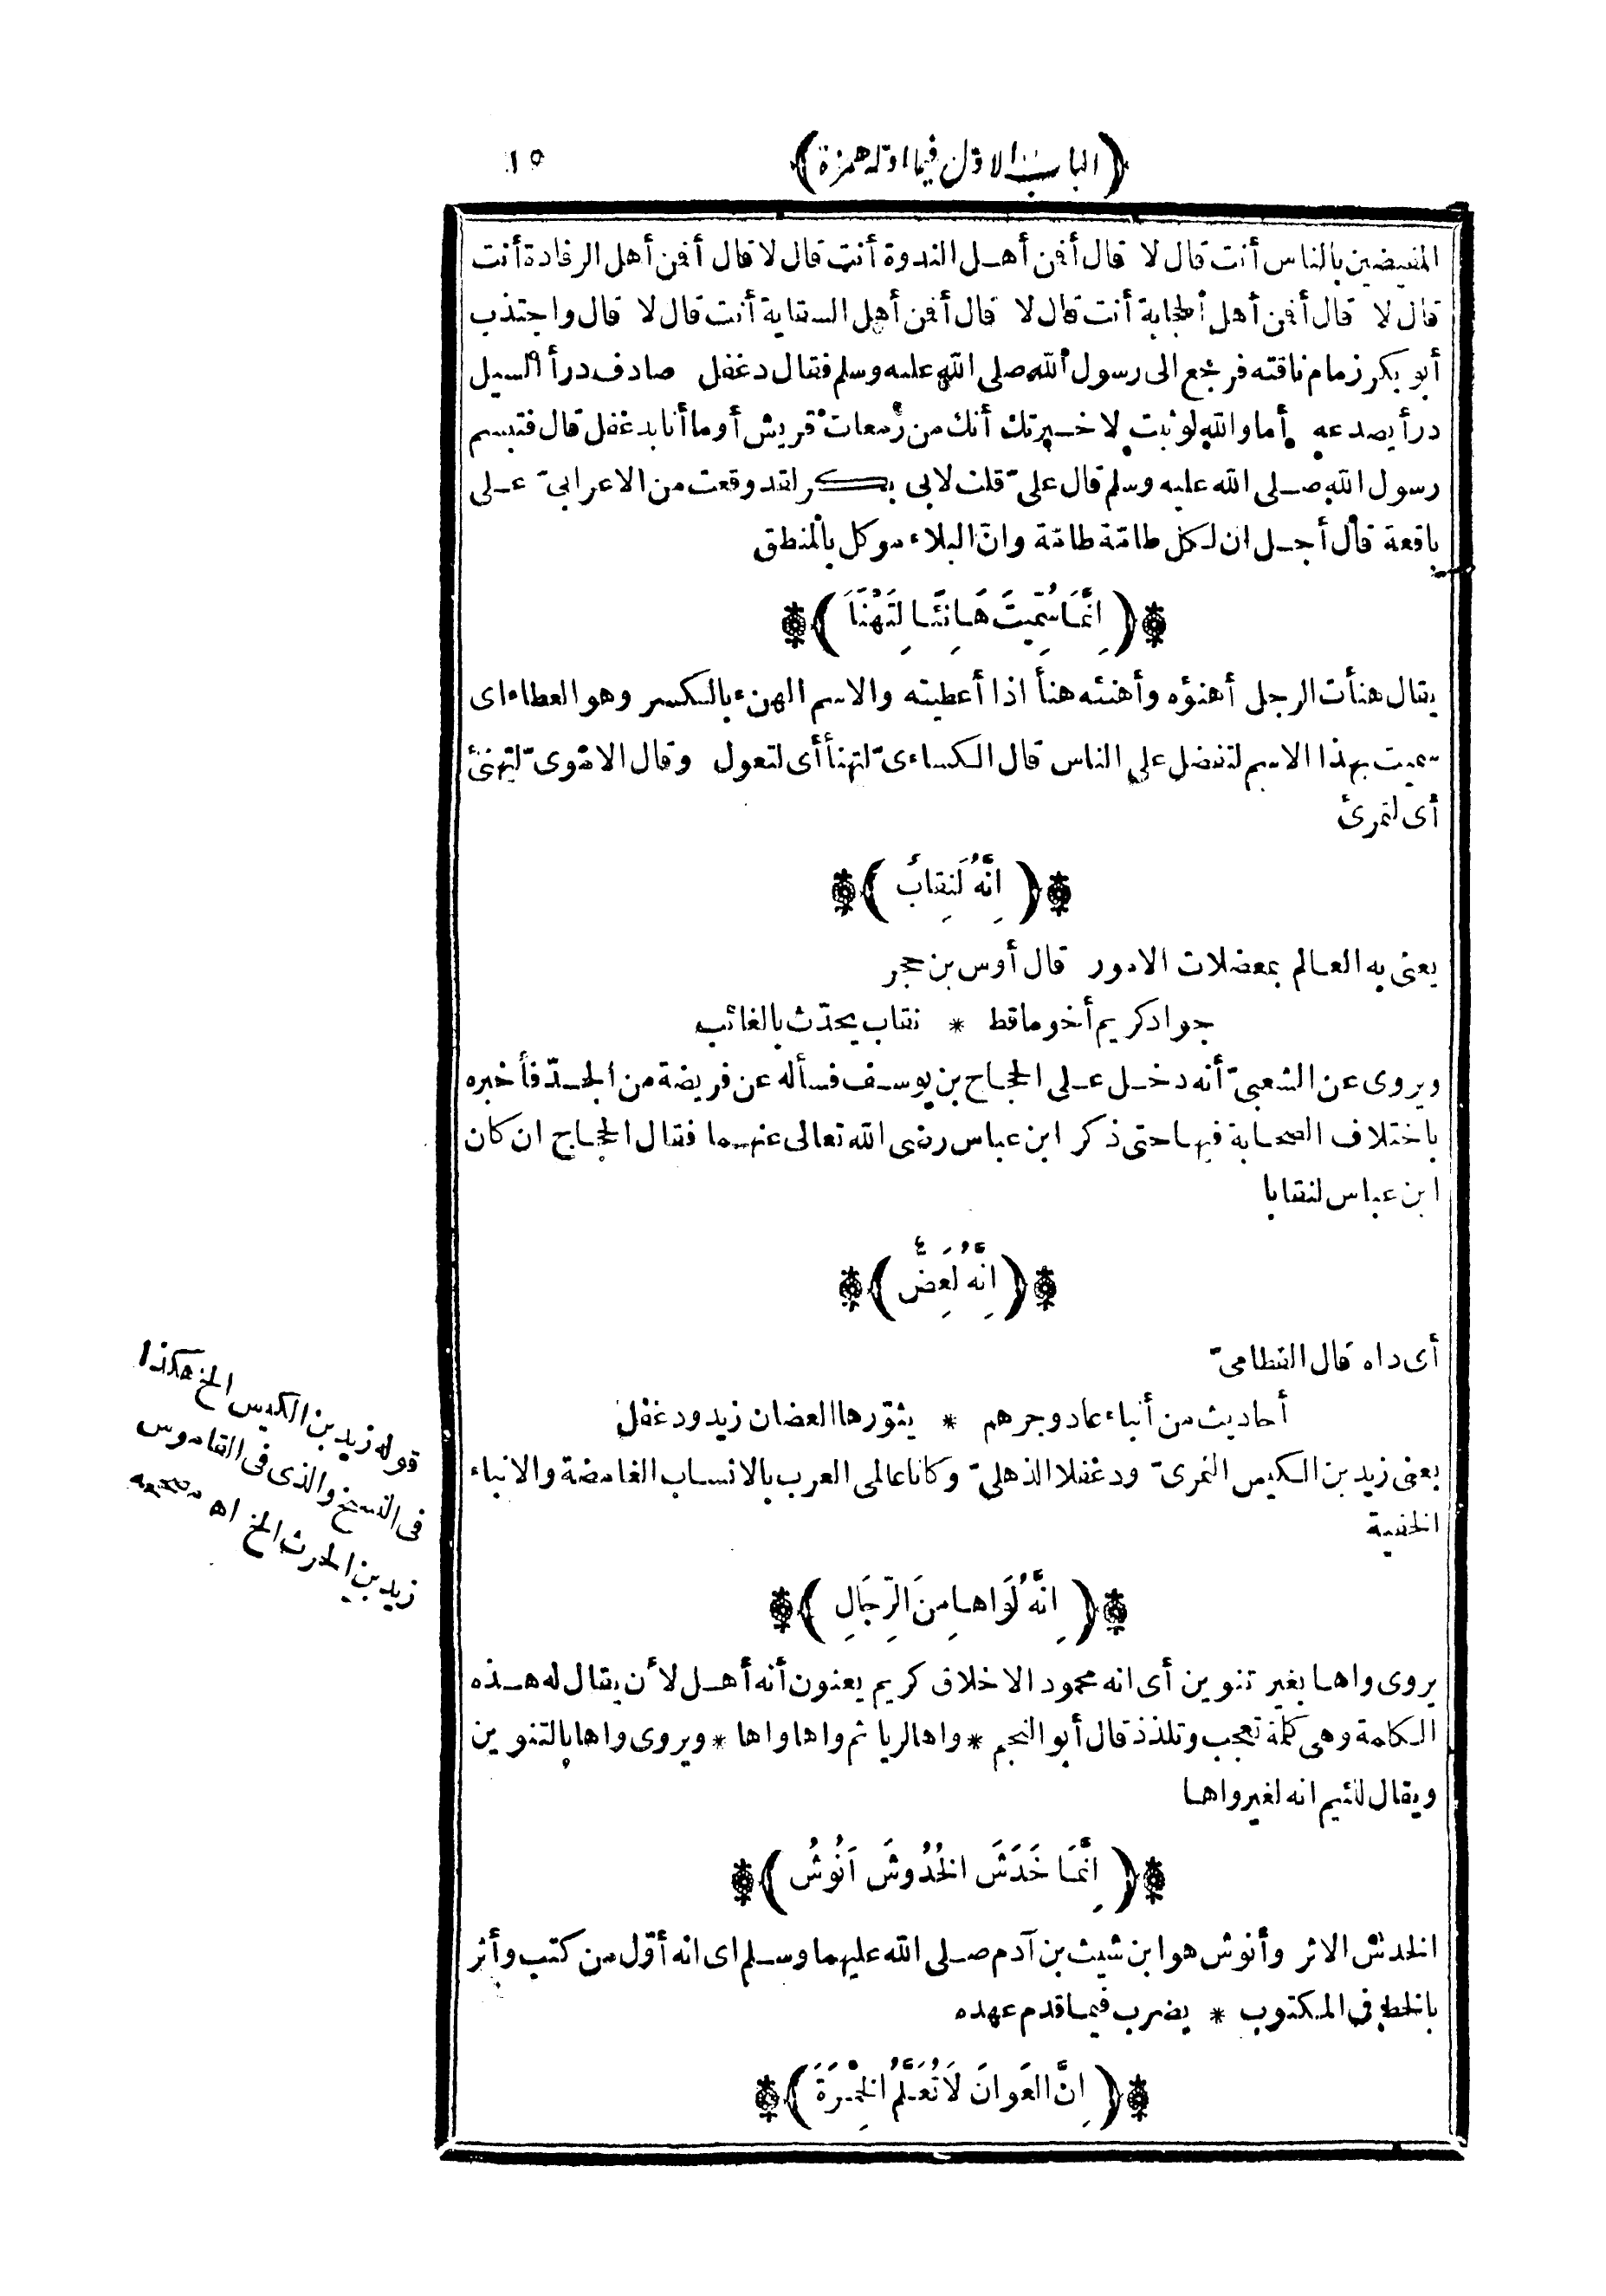 (الباب الاوّل فيما اوّله همزة)
١٥
المفيضين بالناس أنت قال لا قال أفمن أهل الندوة أنت قال لا قال أفمن أهل الرفادة أنت
قال لا قال أفمن أهل الحجابة أنت قال لا قال أفمن أهل السقاية أنت قال لا قال واجتذب
أبو بكر زمام ناقته فرجع الى رسول الله صلى الله عليه وسلم فقال دغفل صادف درأ السيل
درأ يصدعه أما والله لو ثبت لاخبرتك أنك من زمعات قريش أو ما أنا بدغفل قال فتبسم
رسول الله صلى الله عليه وسلم قال علىّ قلت لابى بكر لقد وقعت من الاعرابىّ على
باقعة قال أجل ان لكل طامّة طامّة وانّ البلاء موكل بالمنطق
(اِنَّمَا سُمِّيتَ هَانِئًا لِتَهْنَأَ)
يقال هنأت الرجل أهنؤه وأهنئه هنأ اذا أعطيته والاسم الهنء بالكسر وهو العطاء اى
سميت بهذا الاسم لتفضل على الناس قال الكساءىّ لتهنأ أى لتعول وقال الامّوىّ لتهنئ
أى لتمرئ
(اِنَّهُ لَنِقَابٌ)
يعنى به العالم بمعضلات الامور قال أوس بن حجر
جواد كريم أخو ماقط * نقاب يحدّث بالغائب
ويروى عن الشعبىّ أنه دخل على الحجاج بن يوسف فسأله عن فريضة من الجدّ فأخبره
باختلاف الصحابة فيها حتى ذكر ابن عباس رضى الله تعالى عنهما فقال الحجاج ان كان
ابن عباس لنقابا
(اِنَّهُ لَعِضٌّ)
أى داه قال القطامىّ
أحاديث من أنباء عاد وجرهم * يثوّرها العضان زيد ودغفل
يعنى زيد بن الكيس النمرىّ ودغفلا الذهلىّ وكانا عالمى العرب بالانساب الغامضة والانباء
الخفية
(اِنَّهُ لَوَاهًا مِنَ الرِّجَالِ)
يروى واها بغير تنوين أى انه محمود الاخلاق كريم يعنون أنه أهل لأن يقال له هذه
الكلمة وهى كلمة تعجب وتلذذ قال أبو النجم * واها لريا ثم واها واها * ويروى واها بالتنوين
ويقال للئيم انه لغير واها
(اِنَّمَا خَدَشَ الخُدُوشَ اَنُوشُ)
الخدش الاثر وأنوش هو ابن شيث بن آدم صلى الله عليهما وسلم اى انه أوّل من كتب وأثر
بالخط فى المكتوب * يضرب فيما قدم عهده
(اِنَّ العَوانَ لَا تُعَلَّمُ الخِمْرَةَ)
قوله زيد بن الكيس الخ هكذا
فى النسخ والذى فى القاموس
زيد بن الحرث الخ اه مصححه